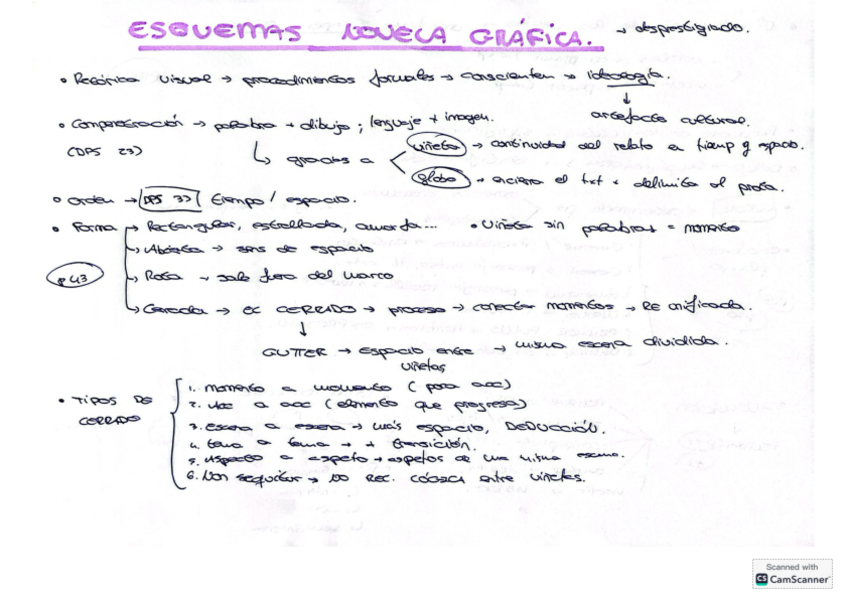 ESQUEMAS NOVELA GRÁFICA. → desprestigiado.
• Retórica visual → procedimientos formales → conscientem → ideología.
↓
artefacto cultural.
• Compenetración → palabra + dibujo ; lenguaje + imagen.
(DPS 23)
↳ gracias a < viñeta → continuidad del relato en tiemp y espacio.
globo → encierra el txt + delimita al
• Orden → DPS 33 tiempo / espacio.
• Forma → Rectangular, estrellada, • Viñeta sin palabras = momento
→ Abierta → sens de espacio
p 43
→ Rota → sale fuera del marco
→ Cerrada → EL CERRADO → proceso → conectar momentos → RE unificada.
↓
GUTTER → espacio entre viñetas → misma escena dividida.
• TIPOS DE CERRADO
1. momento a momento ( acc)
2. Acc a acc (elemento que progresa)
3. escena a escena → más espacio, DEDUCCIÓN.
4. tema a tema → + transición.
5. Aspecto a aspeto → aspetos de una misma escena.
6. Non sequitur → NO REL. LÓGICA entre viñetas.
Scanned with
CS CamScanner